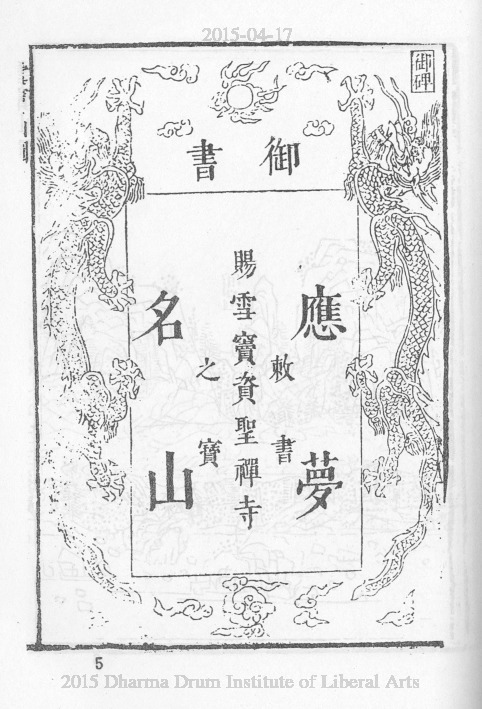 2015-04-17
御碑
御書
應夢
敕書
賜雪竇資聖禪寺
之寶
名山
5
2015 Dharma Drum Institute of Liberal Arts